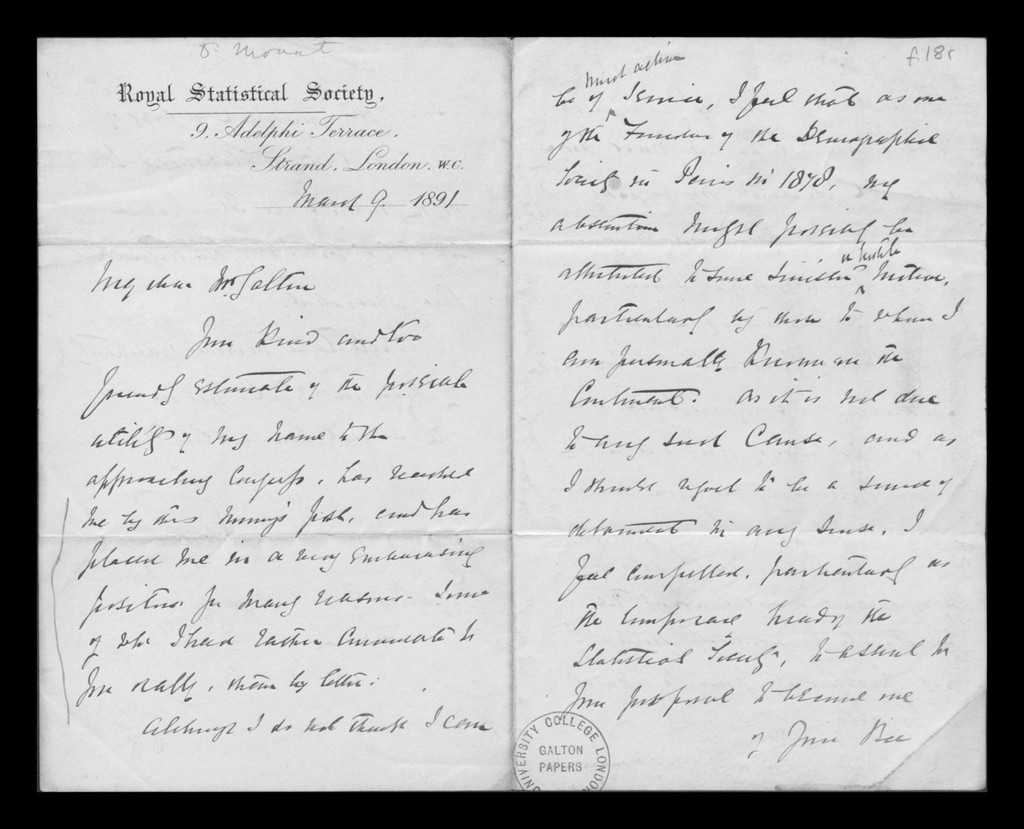 F. Mouat
Royal Statistical Society,
9, Adelphi Terrace,
Strand, London, W.C.
March 9. 1891
My dear Mr Galton
Your kind and too
friendly estimate of the possible
utility of my name to the
approaching Congress, has reached
me by this morning's post, and has
placed me in a very embarrassing
position for many reasons - some
of wh: I had rather communicate to
you orally, than by letter:
Although I do not think I can
f.18r
much active
be of service, I feel that as one
of the Founders of the Demographic
Society in Paris in 1878, my
abstention might possibly be
or hostile
attributed to some sinister motive,
particularly by those to whom I
am personally known on the
Continent. As it is not due
to any such cause, and as
I should regret to be a source of
detriment in any sense, I
feel compelled, particularly as
the temporary head of the
Statistical Society, to assent to
your proposal to become one
of your Vice
UNIVERSITY COLLEGE LONDON
GALTON
PAPERS